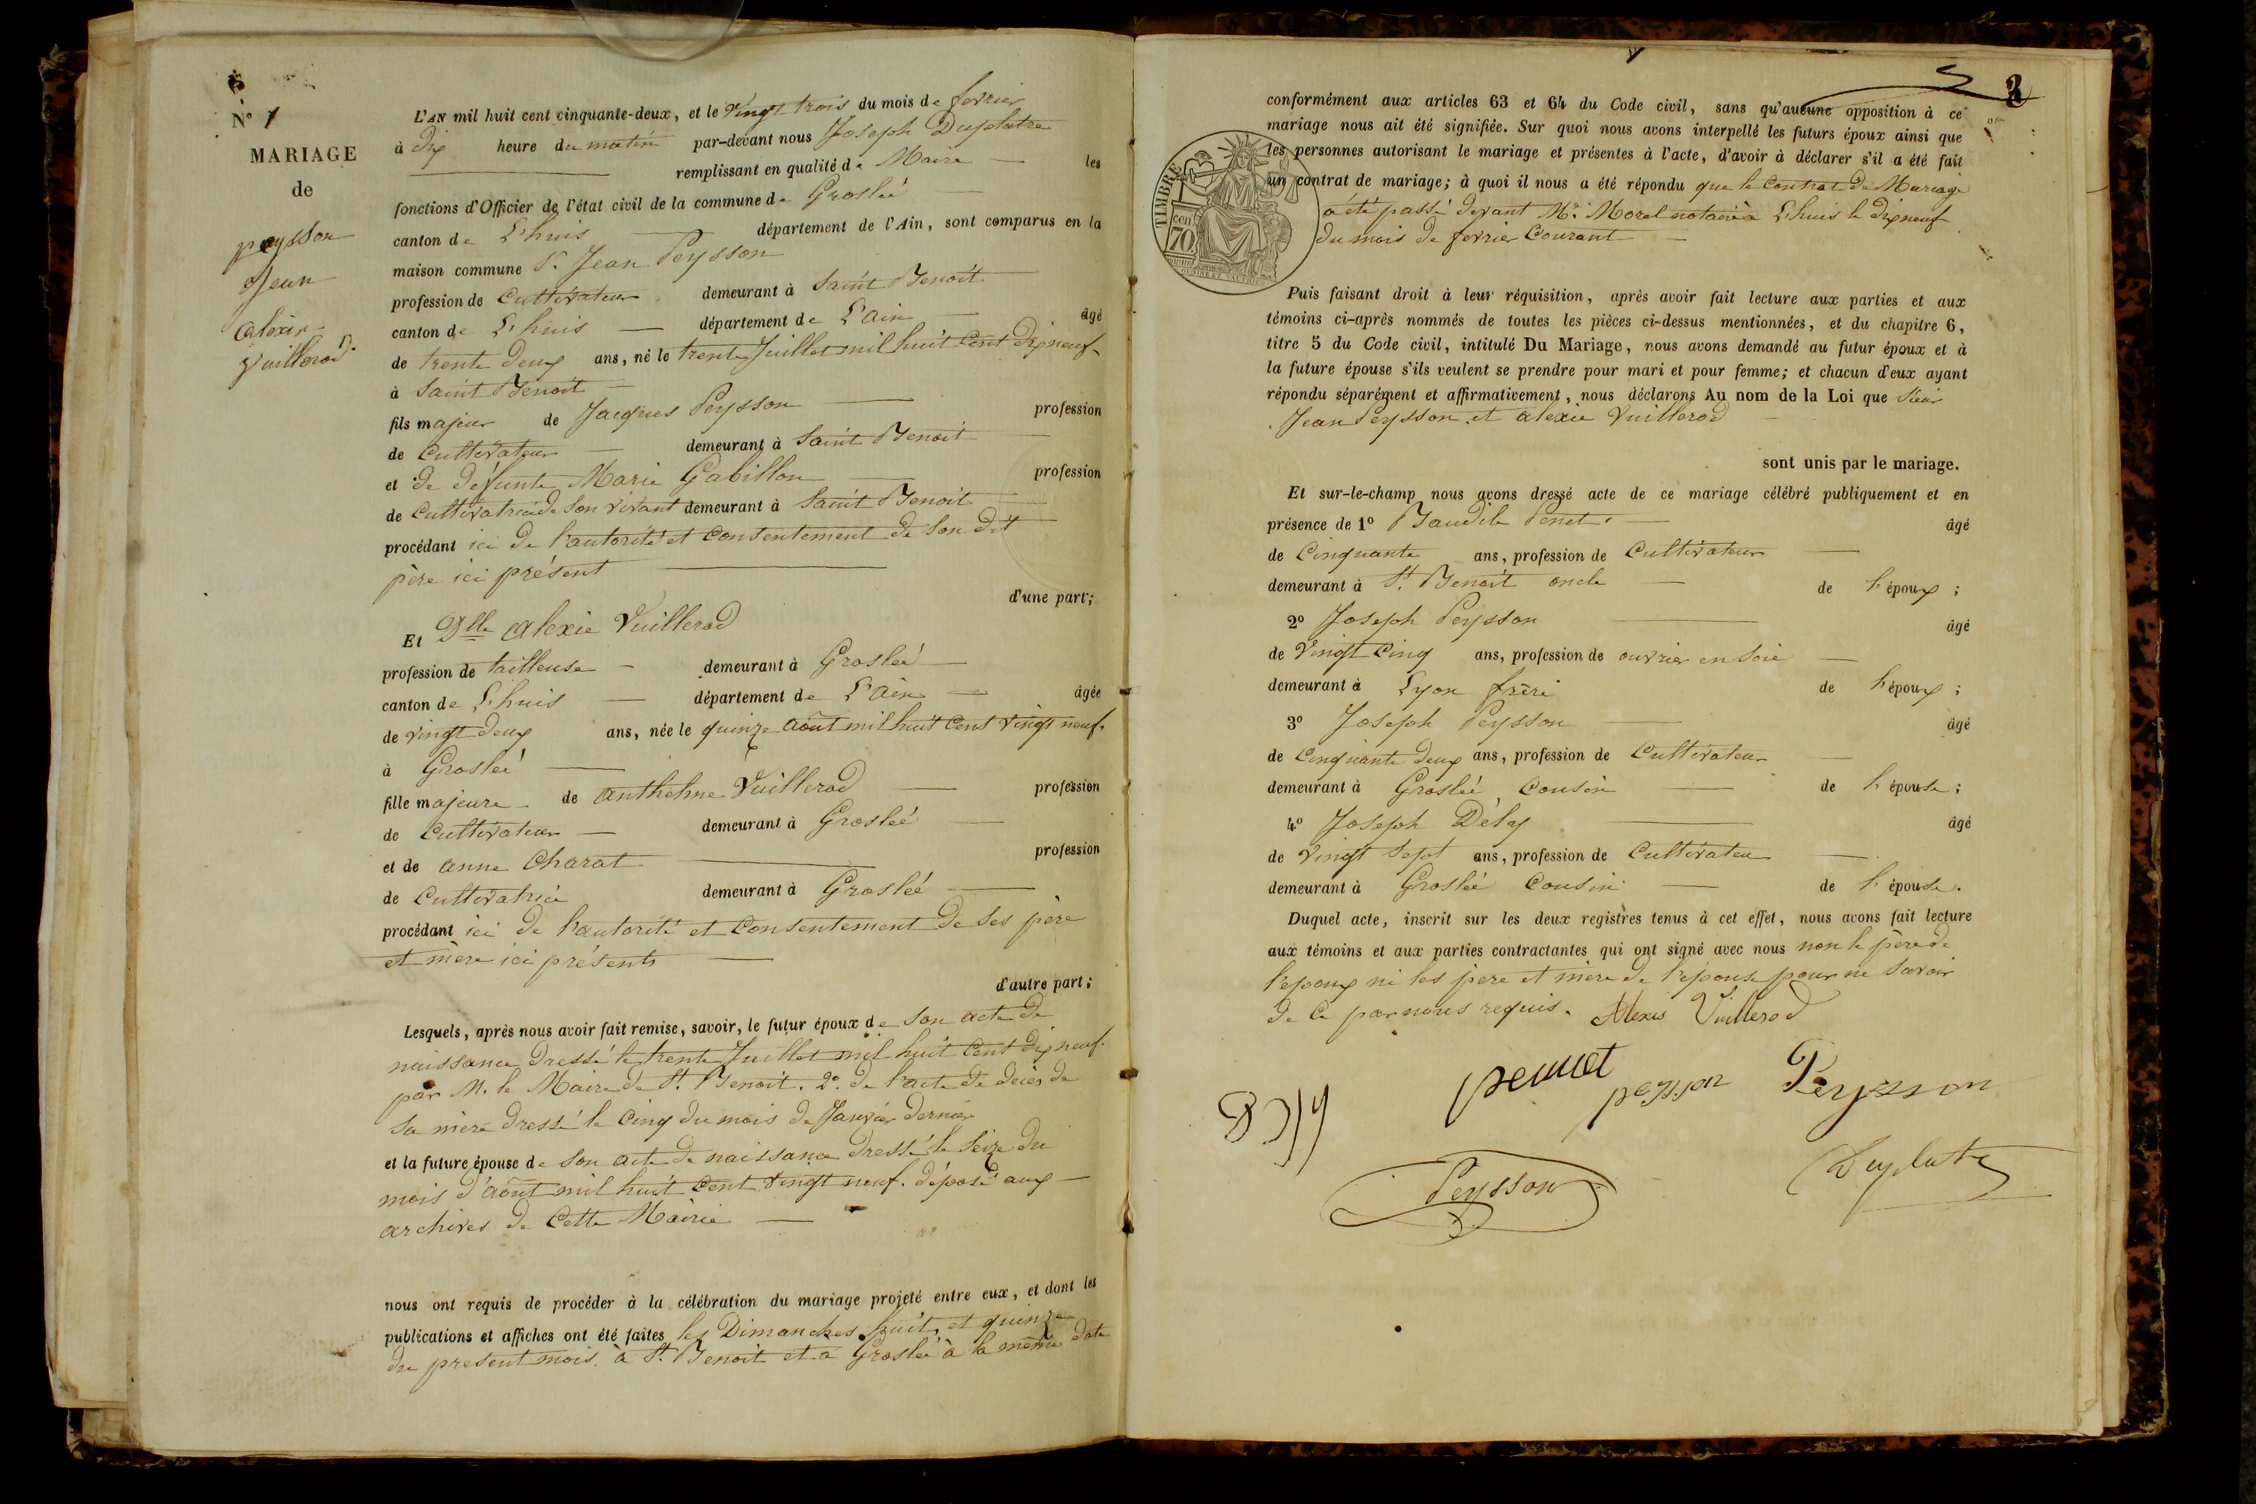 N° 1
MARIAGE
de
peysson
Jean
alexie
Vuillerod.
L'AN mil huit cent cinquante-deux, et le vingt trois du mois de fevrier
à dix heure du matin par-devant nous Joseph Duplatre
remplissant en qualité de Maire les
fonctions d'Officier de l'état civil de la commune de Groslée
canton de Lhuis département de l'Ain, sont comparus en la
maison commune Sr. Jean Peysson
profession de Cultivateur demeurant à Saint Benoit
canton de Lhuis département de L'ain âgé
de trente deux ans, né le trente Juillet mil huit cent dix neuf
à Saint Benoit
fils majeur de Jacques Peysson profession
de Cultivateur demeurant à Saint Benoit
et de défunte Marie Gabillon profession
de Cultivatrice de son vivant demeurant à Saint Benoit
procédant ici de l'autorité et consentement de son dit
père ici présent
d'une part;
Et Dlle alexie Vuillerod
profession de tailleuse demeurant à Groslée
canton de Lhuis département de L'Ain âgée
de vingt deux ans, née le quinze août mil huit cent vingt neuf.
à Groslée
fille majeure de anthelme Vuillerod profession
de Cultivateur demeurant à Groslée
et de anne Charat profession
de Cultivatrice demeurant à Groslée
procédant ici de l'autorité et consentement de ses père
et mère ici présents
d'autre part;
Lesquels, après nous avoir fait remise, savoir, le futur époux de son acte de
naissance dressé le trente Juillet mil huit cent dix neuf.
par M. le Maire de St. Benoit. 2° de l'acte de décès de
sa mère dressé le cinq du mois de Janvier dernier
et la future épouse de son acte de naissance dressé le seize du
mois d'août mil huit cent vingt neuf. déposé aux
archives de cette Mairie
nous ont requis de procéder à la célébration du mariage projeté entre eux, et dont les
publications et affiches ont été faites les Dimanches huit et quinze
du present mois à St. Benoit et a Groslée à la même date
3
conformément aux articles 63 et 64 du Code civil, sans qu'aucune opposition à ce
mariage nous ait été signifiée. Sur quoi nous avons interpellé les futurs époux ainsi que
les personnes autorisant le mariage et présentes à l'acte, d'avoir à déclarer s'il a été fait
un contrat de mariage; à quoi il nous a été répondu que le contrat de Mariage
a été passé devant Me. Morel notaire à Lhuis le dix neuf
du mois de fevrier courant
TIMBRE
cen
70
Puis faisant droit à leur réquisition, après avoir fait lecture aux parties et aux
témoins ci-après nommés de toutes les pièces ci-dessus mentionnées, et du chapitre 6,
titre 5 du Code civil, intitulé Du Mariage, nous avons demandé au futur époux et à
la future épouse s'ils veulent se prendre pour mari et pour femme; et chacun d'eux ayant
répondu séparément et affirmativement, nous déclarons Au nom de la Loi que Sieur
Jean Peysson et alexie Vuillerod
sont unis par le mariage.
Et sur-le-champ nous avons dressé acte de ce mariage célébré publiquement et en
présence de 1° Baudile Penet âgé
de Cinquante ans, profession de Cultivateur
demeurant à St. Benoit oncle de l'époux;
2° Joseph Peysson âgé
de vingt cinq ans, profession de ouvrier en soie
demeurant à Lyon frère de l'époux;
3° Joseph Peysson âgé
de cinquante deux ans, profession de Cultivateur
demeurant à Groslée cousin de l'épouse;
4° Joseph Dély âgé
de vingt sept ans, profession de Cultivateur
demeurant à Groslée Cousin de l'épouse.
Duquel acte, inscrit sur les deux registres tenus à cet effet, nous avons fait lecture
aux témoins et aux parties contractantes qui ont signé avec nous non le père de
l'epoux ni les pere et mère de l'epouse pour ne savoir
de ce par nous requis. Alexis Vuillerod
penet peysson Peysson
Peysson Duplatre